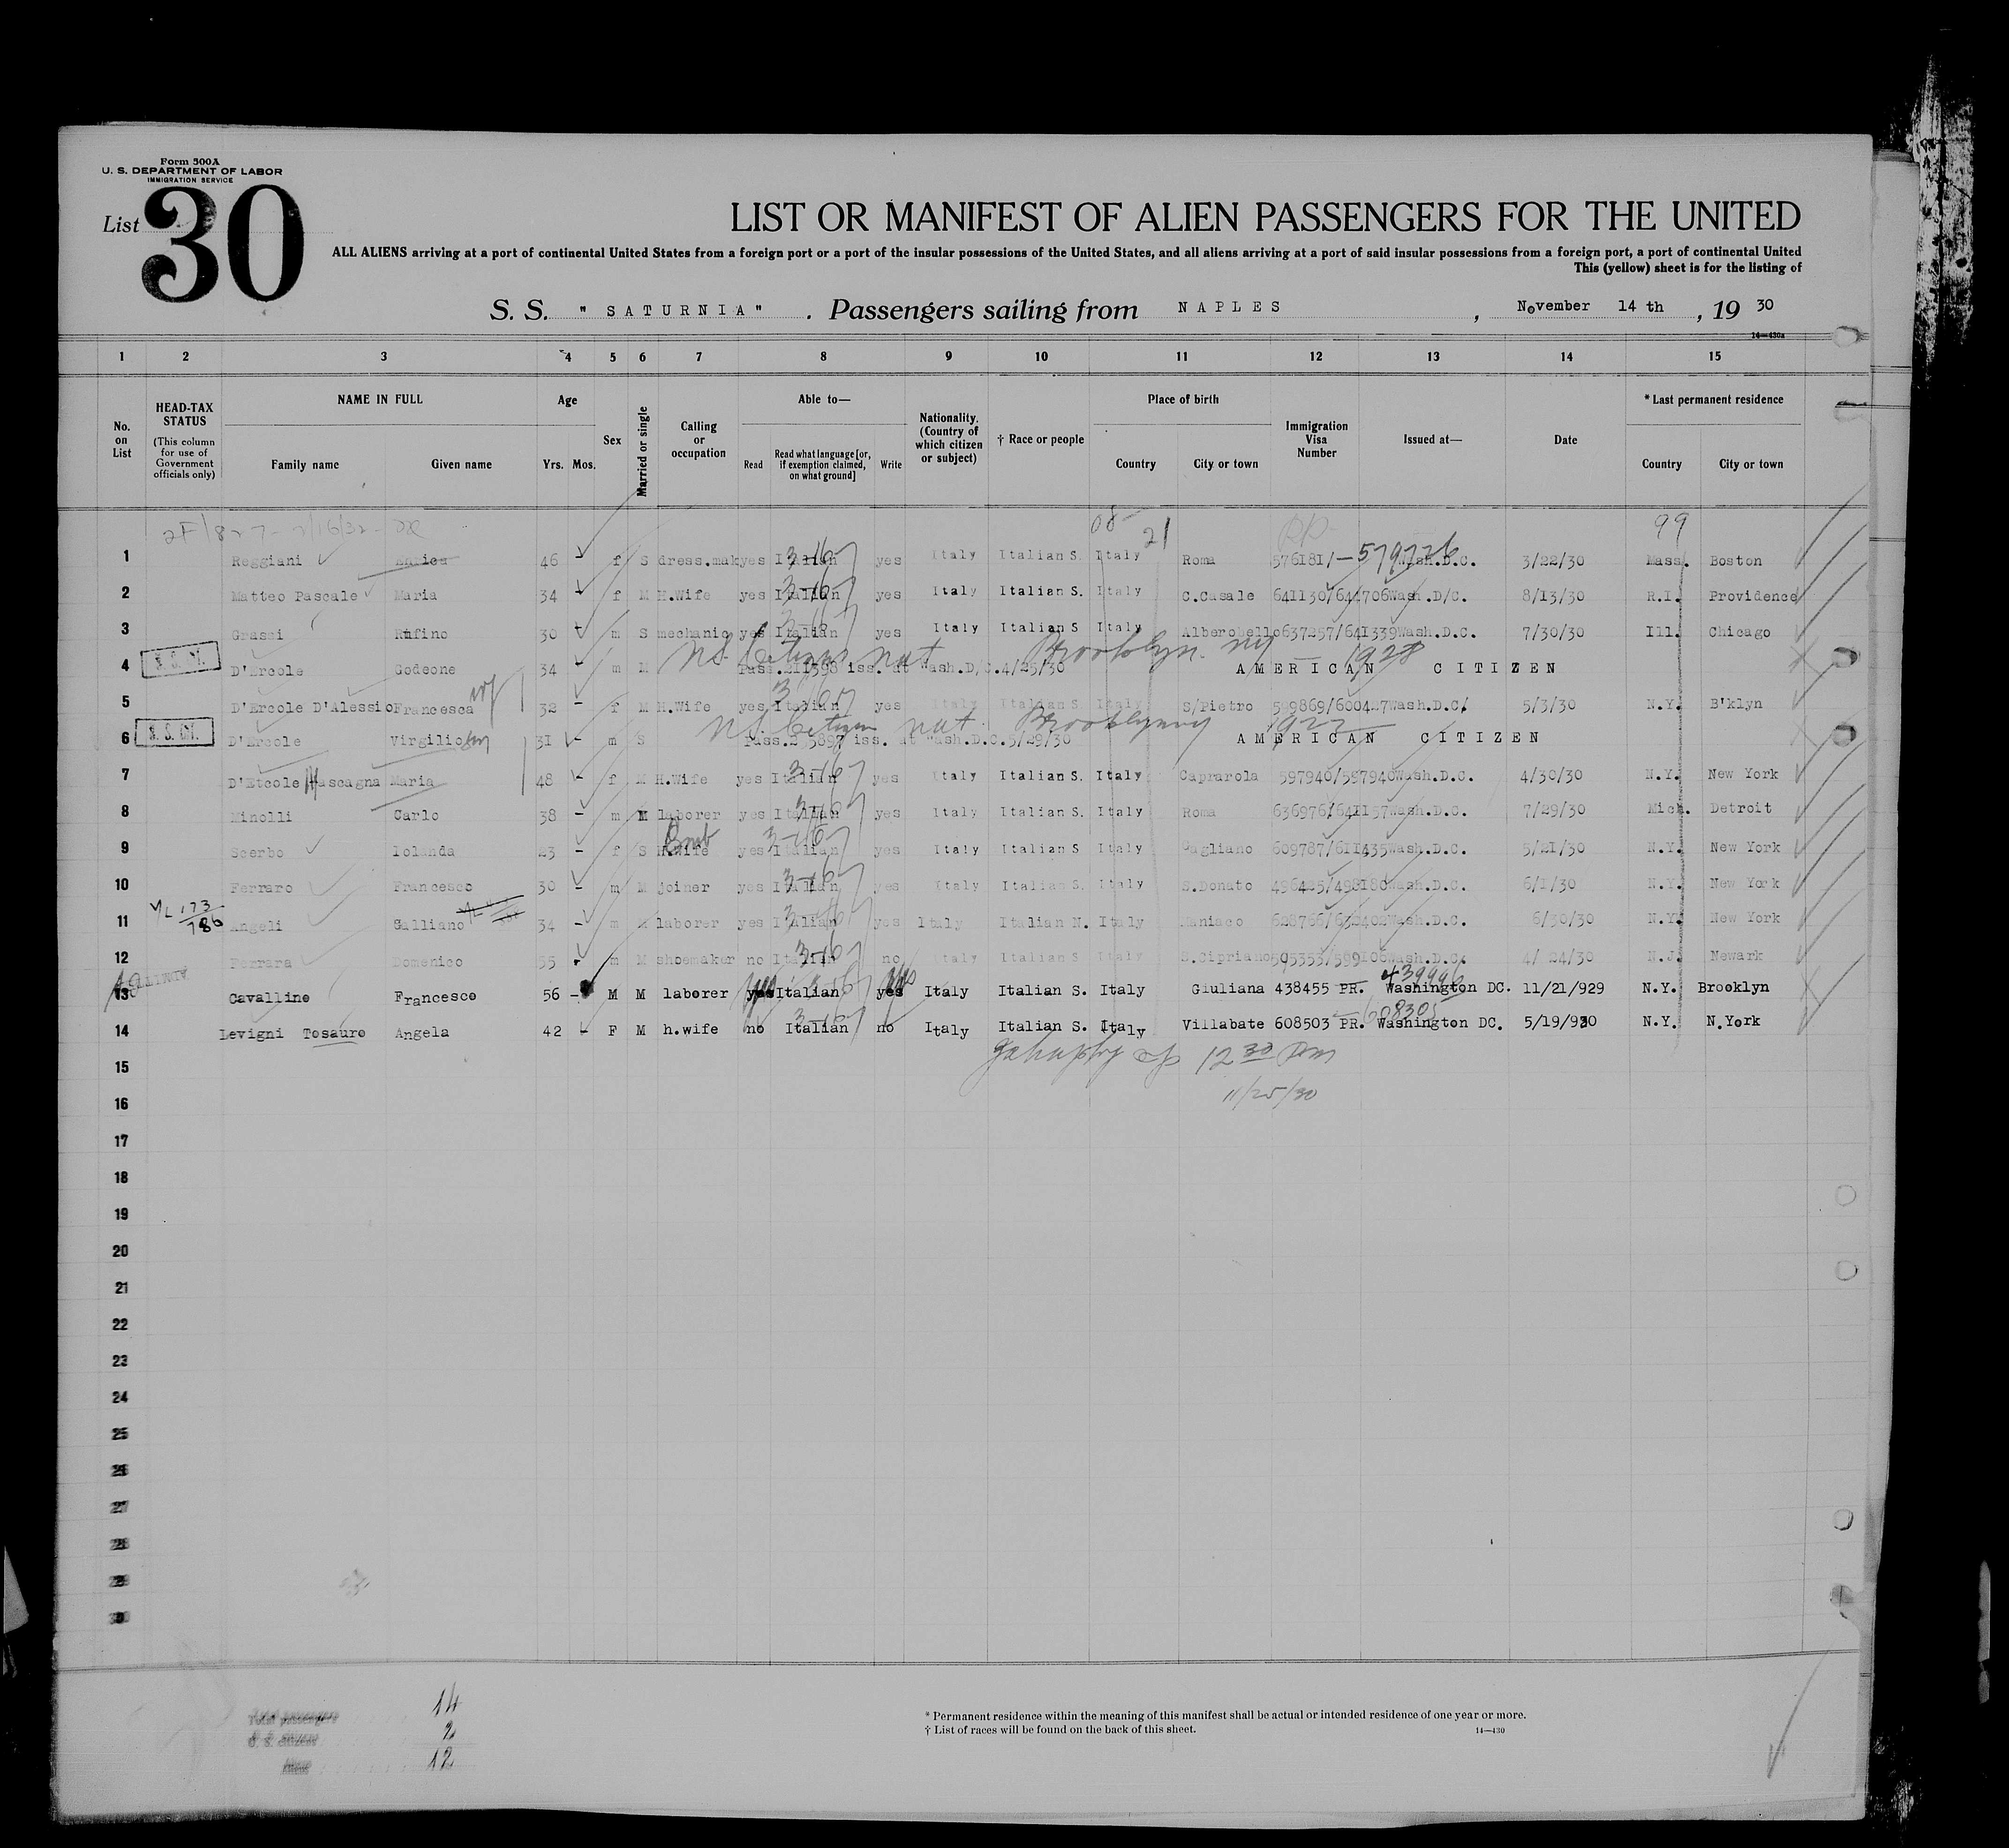 Form 500A
U. S. DEPARTMENT OF LABOR
IMMIGRATION SERVICE
List 30
LIST OR MANIFEST OF ALIEN PASSENGERS FOR THE UNITED
ALL ALIENS arriving at a port of continental United States from a foreign port or a port of the insular possessions of the United States, and all aliens arriving at a port of said insular possessions from a foreign port, a port of continental United
This (yellow) sheet is for the listing of
S. S. "SATURNIA" . Passengers sailing from NAPLES , November 14 th , 19 30
14—430a
1 2 3 4 5 6 7 8 9 10 11 12 13 14 15
No. on List
HEAD-TAX STATUS (This column for use of Government officials only)
NAME IN FULL
Family name Given name
Age
Yrs. Mos.
Sex
Married or single
Calling or occupation
Able to—
Read Read what language [or, if exemption claimed, on what ground] Write
Nationality. (Country of which citizen or subject)
† Race or people
Place of birth
Country City or town
Immigration Visa Number
Issued at—
Date
* Last permanent residence
Country City or town
08 21 99
1 Reggiani Enrica 46 - f S dress.mak yes Italian 3-16 yes Italy Italian S. Italy Roma 576181/-579726 Wash.D.C. 3/22/30 Mass. Boston
2 Matteo Pascale Maria 34 - f M H.Wife yes Italian 3-16 yes Italy Italian S. Italy C.Casale 641130/644706 Wash.D/C. 8/13/30 R.I. Providence
3 Grassi Rufino 30 m S mechanic yes Italian yes Italy Italian S Italy Alberobello 637257/641339 Wash.D.C. 7/30/30 Ill. Chicago
US Citizen nat Brooklyn ny 1928
4 D'Ercole Gedeone 34 - m M Pass. iss. at Wash.D/C.4/25/30 AMERICAN CITIZEN
5 D'Ercole D'Alessio Francesca wf 32 - f M H.Wife yes Italian yes Italy Italian S Italy S/Pietro 599869/600427 Wash.D.C/ 5/3/30 N.Y. B'klyn
US Citizen nat Brooklyn ny
6 D'Ercole Virgilio 31 - m S Pass. iss. at Wash.D.C.5/29/30 AMERICAN CITIZEN
7 D'Etcole Mascagna Maria 48 - f M H.Wife yes Italian 3-16 yes Italy Italian S. Italy Caprarola 597940/597940 Wash.D.C. 4/30/30 N.Y. New York
8 Minolli Carlo 38 - m M laborer yes Italian 3-16 yes Italy Italian S. Italy Roma 636976/641157 Wash.D.C. 7/29/30 Mich. Detroit
9 Scerbo Iolanda 23 - f S H.Wife yes Italian 3-16 yes Italy Italian S Italy Gagliano 609787/611435 Wash.D.C. 5/21/30 N.Y. New York
10 Ferraro Francesco 30 - m M joiner yes Italian 3-16 yes Italy Italian S. Italy S.Donato Wash.D.C. 6/1/30 N.Y. New York
11 173/786 Angeli Galliano 34 - m M laborer yes Italian yes Italy Italian N. Italy Maniaco 628766/632402 Wash.D.C. 6/30/30 N.Y. New York
12 Ferrara Domenico 55 - m M shoemaker no Italian 3-16 no Italy Italian S Italy S.Cipriano 595353/599106 Wash.D.C. 4/ 24/30 N.J. Newark
ADMITTED
13 Cavallino Francesco 56 - M M laborer yes Italian yes Italy Italian S. Italy Giuliana 438455 PR. 439996 Washington DC. 11/21/929 N.Y. Brooklyn
14 Levigni Tosauro Angela 42 - F M h.wife no Italian no Italy Italian S. Italy Villabate 608503 PR. 608305 Washington DC. 5/19/930 N.Y. N.York
15 12 30 Pm
16 11/25/30
17
18
19
20
21
22
23
24
25
26
27
28
29
30
Total passengers 14
U. S. citizens 2
Aliens 12
* Permanent residence within the meaning of this manifest shall be actual or intended residence of one year or more.
† List of races will be found on the back of this sheet. 14—430